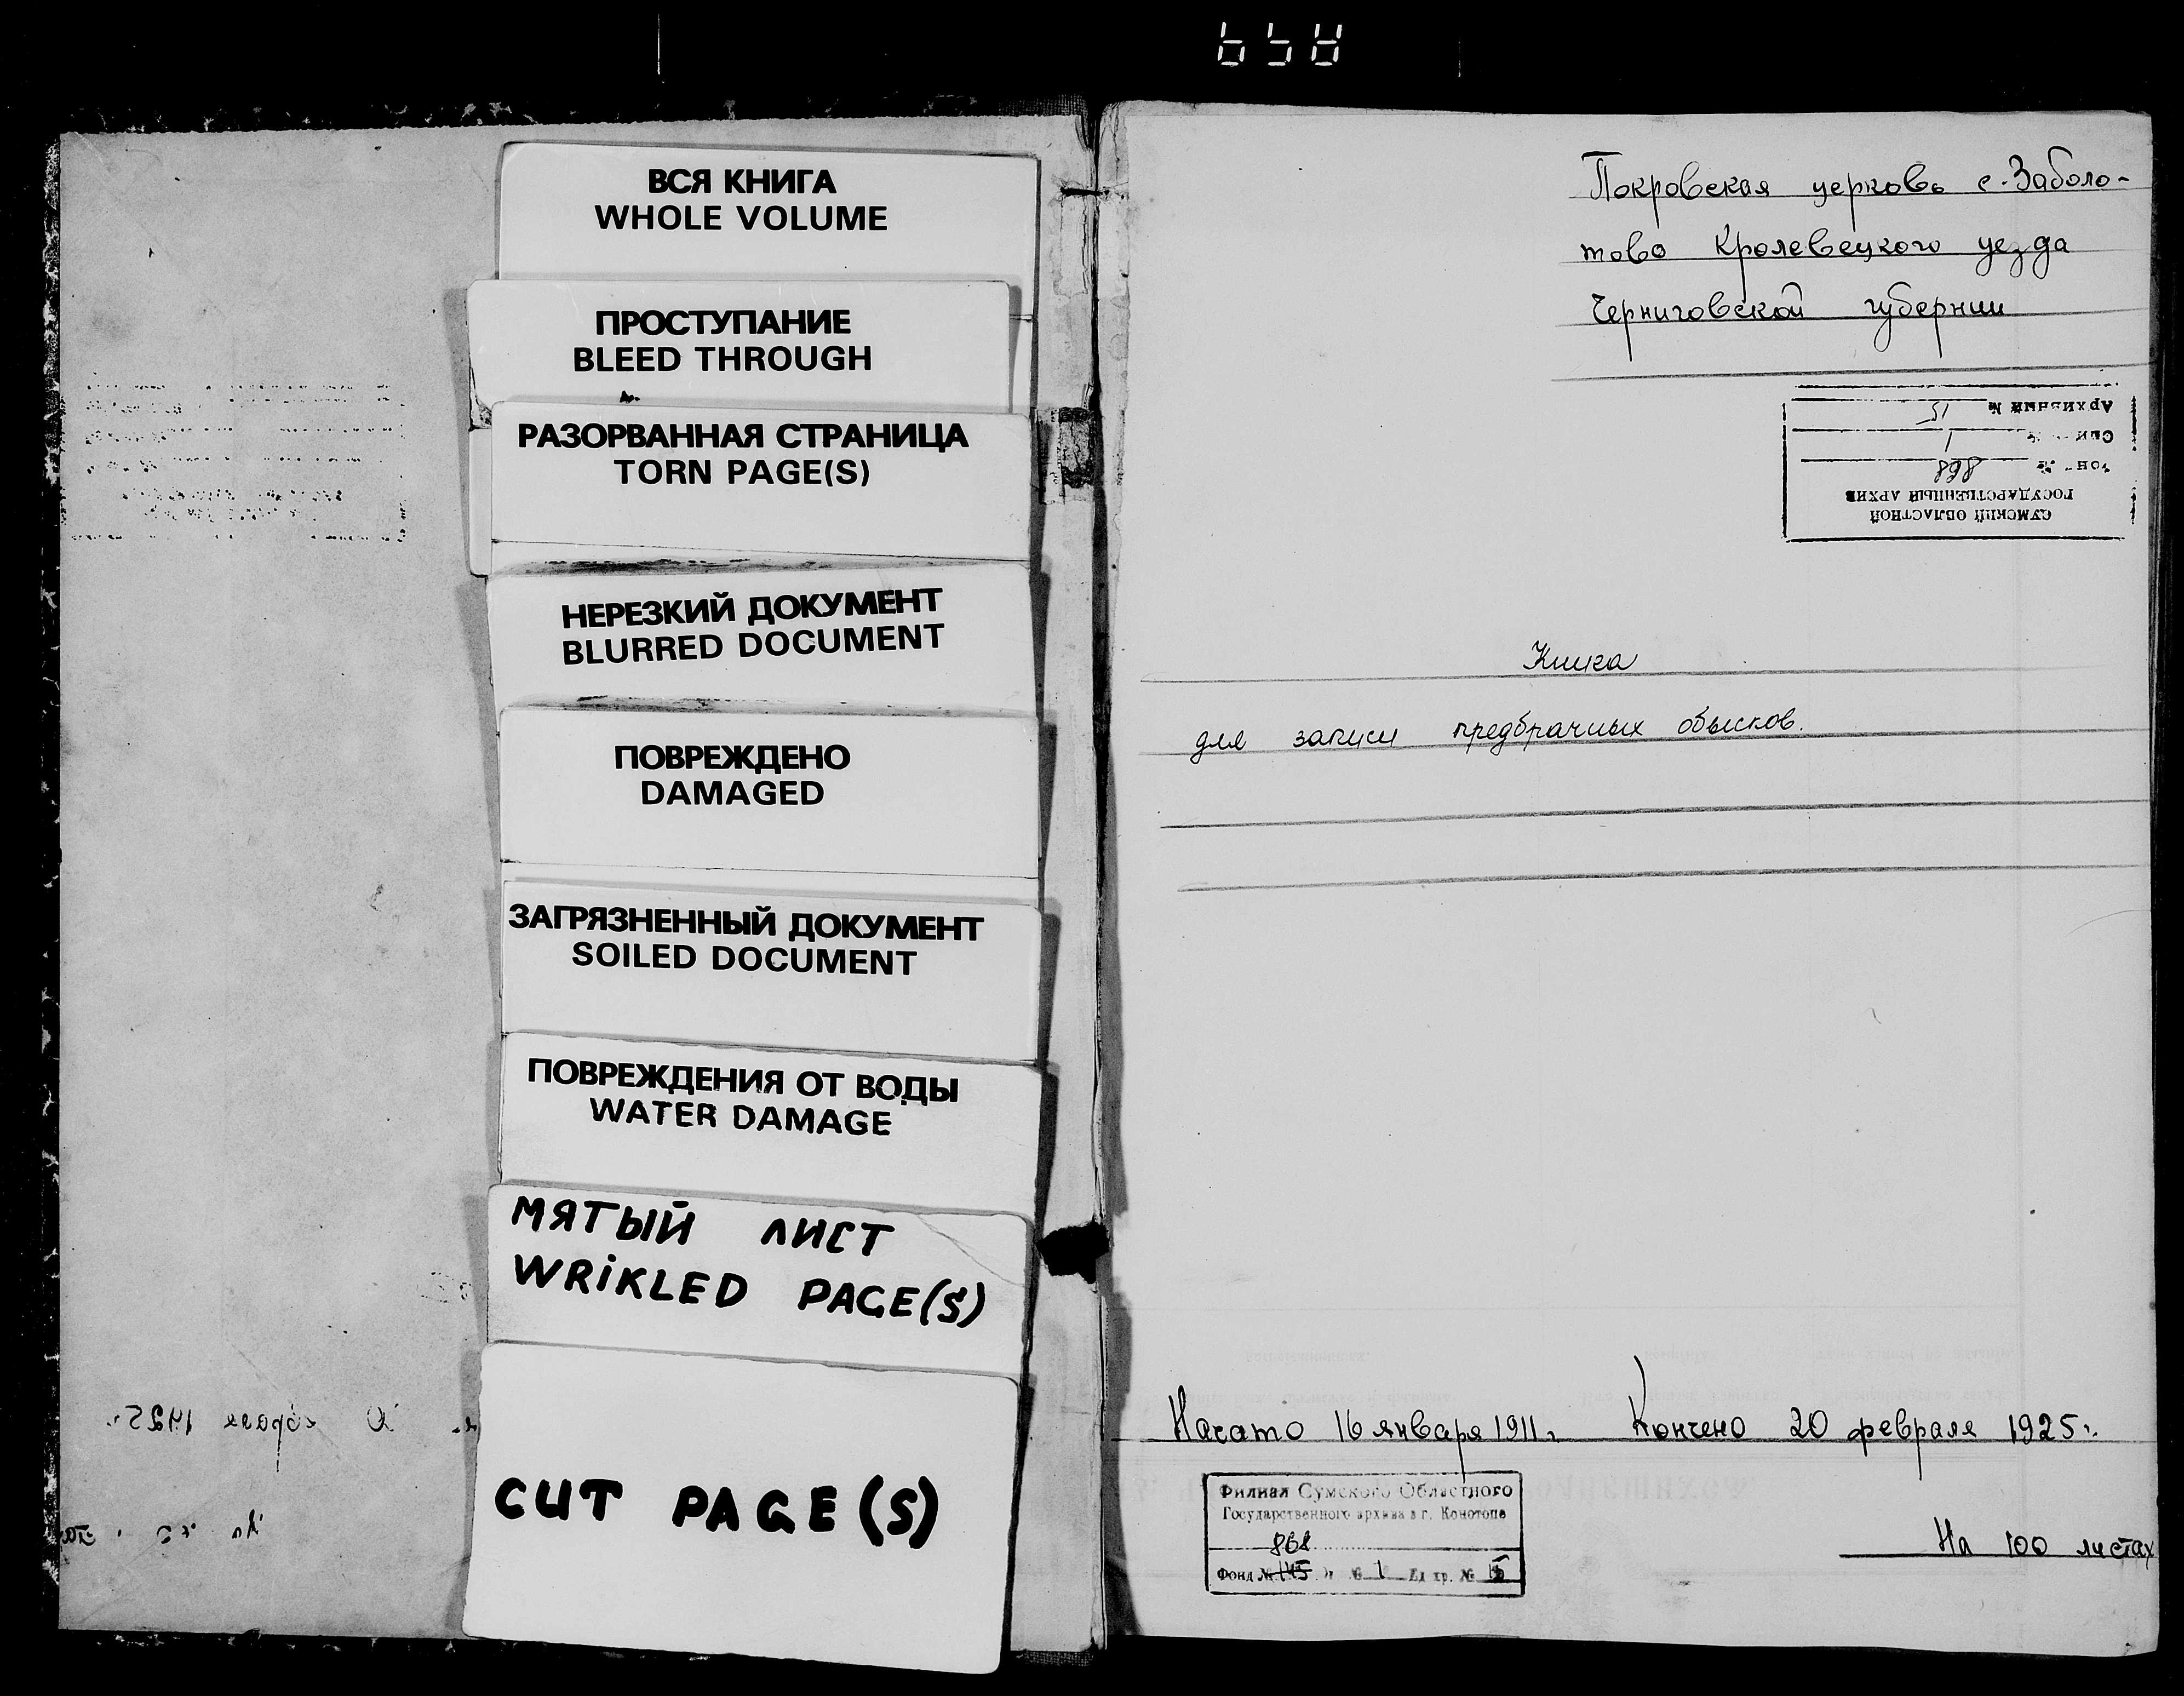 ВСЯ КНИГА
WHOLE VOLUME
ПРОСТУПАНИЕ
BLEED THROUGH
РАЗОРВАННАЯ СТРАНИЦА
TORN PAGE(S)
НЕРЕЗКИЙ ДОКУМЕНТ
BLURRED DOCUMENT
ПОВРЕЖДЕНО
DAMAGED
ЗАГРЯЗНЕННЫЙ ДОКУМЕНТ
SOILED DOCUMENT
ПОВРЕЖДЕНИЯ ОТ ВОДЫ
WATER DAMAGE
МЯТЫЙ ЛИСТ
WRIKLED PAGE(S)
CUT PAGE(S)
Покровская церковь с. Заболо-
тово Кролевецкого уезда
Черниговской губернии
СУМСКИЙ ОБЛАСТНОЙ
ГОСУДАРСТВЕННЫЙ АРХИВ
868
1
Архивный № 15
Книга
для записи предбрачных обысков.
Начато 16 января 1911г. Кончено 20 февраля 1925г.
Филиал Сумского Областного
Государственного архива в г. Конотопе
868
Фонд № 145 1 хр. № 15
На 100 листах